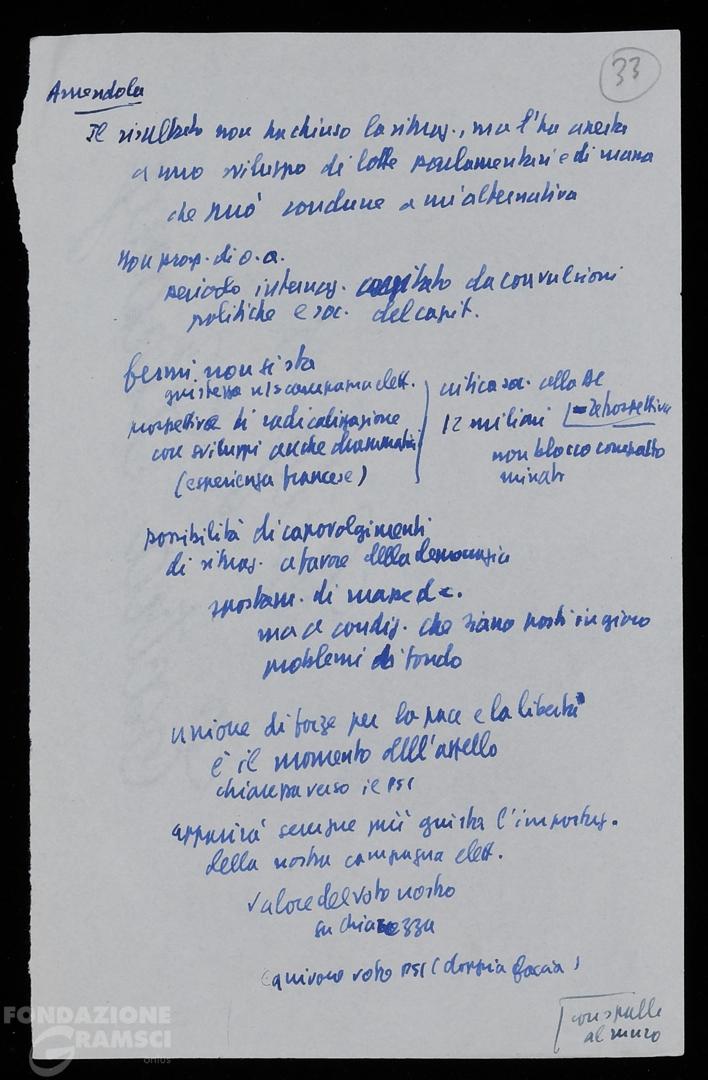 33
Amendola
Il risultato non ha chiuso la situaz., ma l'ha aperta
a uno sviluppo di lotte parlamentari e di massa
che può condurre a un'alternativa
non prosp. di o.a.
periodo internaz. agitato da convulsioni
politiche e soc. del capit.
fermi non si sta
giustezza n/s campagna elett.
prospettiva di radicalizzazione
con sviluppi anche drammatici
(esperienza francese)
critica soc. alla DC
12 milioni = retrospettiva
non blocco compatto
minati
possibilità di capovolgimenti
di situaz. a favore della democrazia
spostam. di masse d.c.
ma a condiz. che siano posti in gioco
problemi di fondo
unione di forze per la pace e la libertà
è il momento dell'appello
chiarezza verso il PSI
apparirà sempre più giusta l'impostaz.
della nostra campagna elett.
valore del voto nostro
su chiarezza
equivoco voto PSI (doppia faccia)
con spalle
al muro
FONDAZIONE
GRAMSCI
onlus